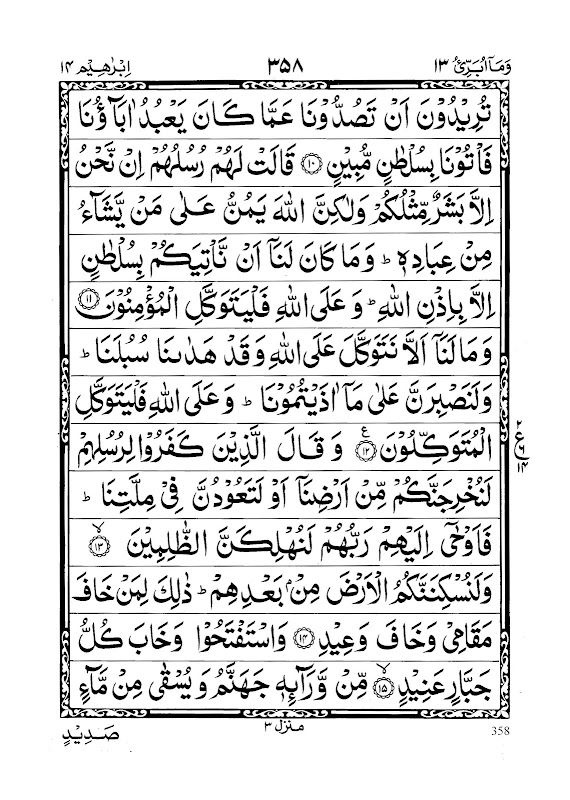 وَمَاۤ اُبَرِّئُ ۱۳ ۳۵۸ اِبْرٰهِيْم ۱۴
تُرِيْدُوْنَ اَنْ تَصُدُّوْنَا عَمَّا كَانَ يَعْبُدُ اٰبَآؤُنَا
فَاْتُوْنَا بِسُلْطٰنٍ مُّبِيْنٍ ۝۱۰ قَالَتْ لَهُمْ رُسُلُهُمْ اِنْ نَّحْنُ
اِلَّا بَشَرٌ مِّثْلُكُمْ وَلٰكِنَّ اللّٰهَ يَمُنُّ عَلٰى مَنْ يَّشَآءُ
مِنْ عِبَادِهٖ ؕ وَمَا كَانَ لَنَاۤ اَنْ نَّاْتِيَكُمْ بِسُلْطٰنٍ
اِلَّا بِاِذْنِ اللّٰهِ ؕ وَ عَلَى اللّٰهِ فَلْيَتَوَكَّلِ الْمُؤْمِنُوْنَ ۝۱۱
وَمَا لَنَاۤ اَلَّا نَتَوَكَّلَ عَلَى اللّٰهِ وَقَدْ هَدٰىنَا سُبُلَنَا ؕ
وَلَنَصْبِرَنَّ عَلٰى مَاۤ اٰذَيْتُمُوْنَا ؕ وَ عَلَى اللّٰهِ فَلْيَتَوَكَّلِ
الْمُتَوَكِّلُوْنَ ۝۱۲ ع وَقَالَ الَّذِيْنَ كَفَرُوْا لِرُسُلِهِمْ
۲ ع ۶ ۱۴
لَنُخْرِجَنَّكُمْ مِّنْ اَرْضِنَاۤ اَوْ لَتَعُوْدُنَّ فِيْ مِلَّتِنَا ؕ
فَاَوْحٰۤى اِلَيْهِمْ رَبُّهُمْ لَنُهْلِكَنَّ الظّٰلِمِيْنَ ۝۱۳ لا
وَلَنُسْكِنَنَّكُمُ الْاَرْضَ مِنْۢ بَعْدِهِمْ ؕ ذٰلِكَ لِمَنْ خَافَ
مَقَامِيْ وَخَافَ وَعِيْدِ ۝۱۴ وَاسْتَفْتَحُوْا وَخَابَ كُلُّ
جَبَّارٍ عَنِيْدٍ ۝۱۵ لا مِّنْ وَّرَآئِهٖ جَهَنَّمُ وَيُسْقٰى مِنْ مَّآءٍ
صَدِيْدٍ منزل ۳ 358